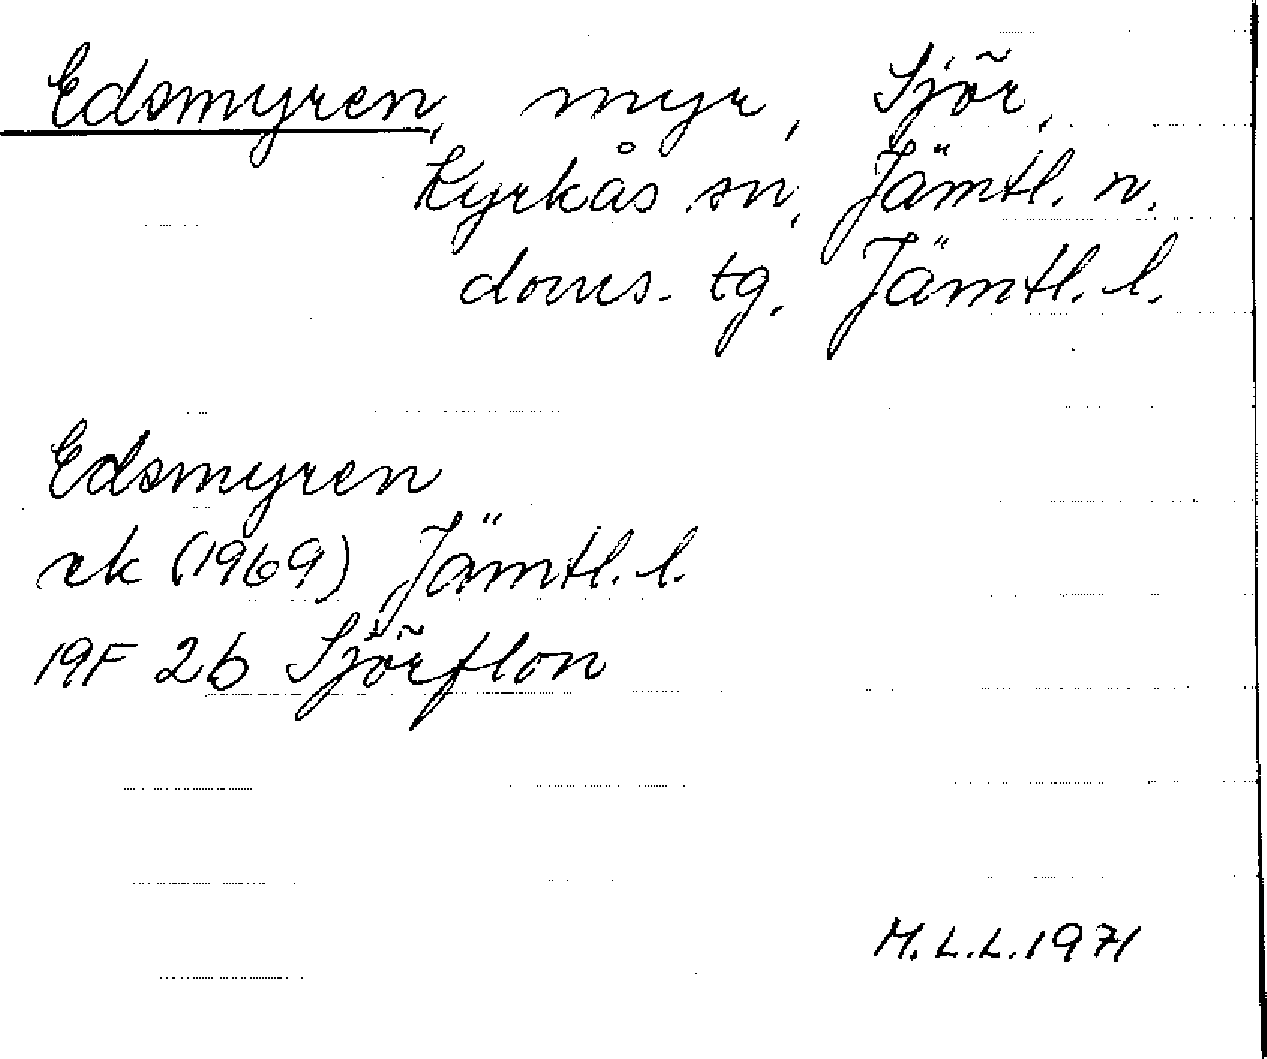 Edsmyren, myr, Sjör,
Kyrkås sn, Jämtl. n.
doms. tg. Jämtl. l.
Edsmyren
rk (1969) Jämtl. l.
19F 2b Sjörflon
M.L.L. 1971